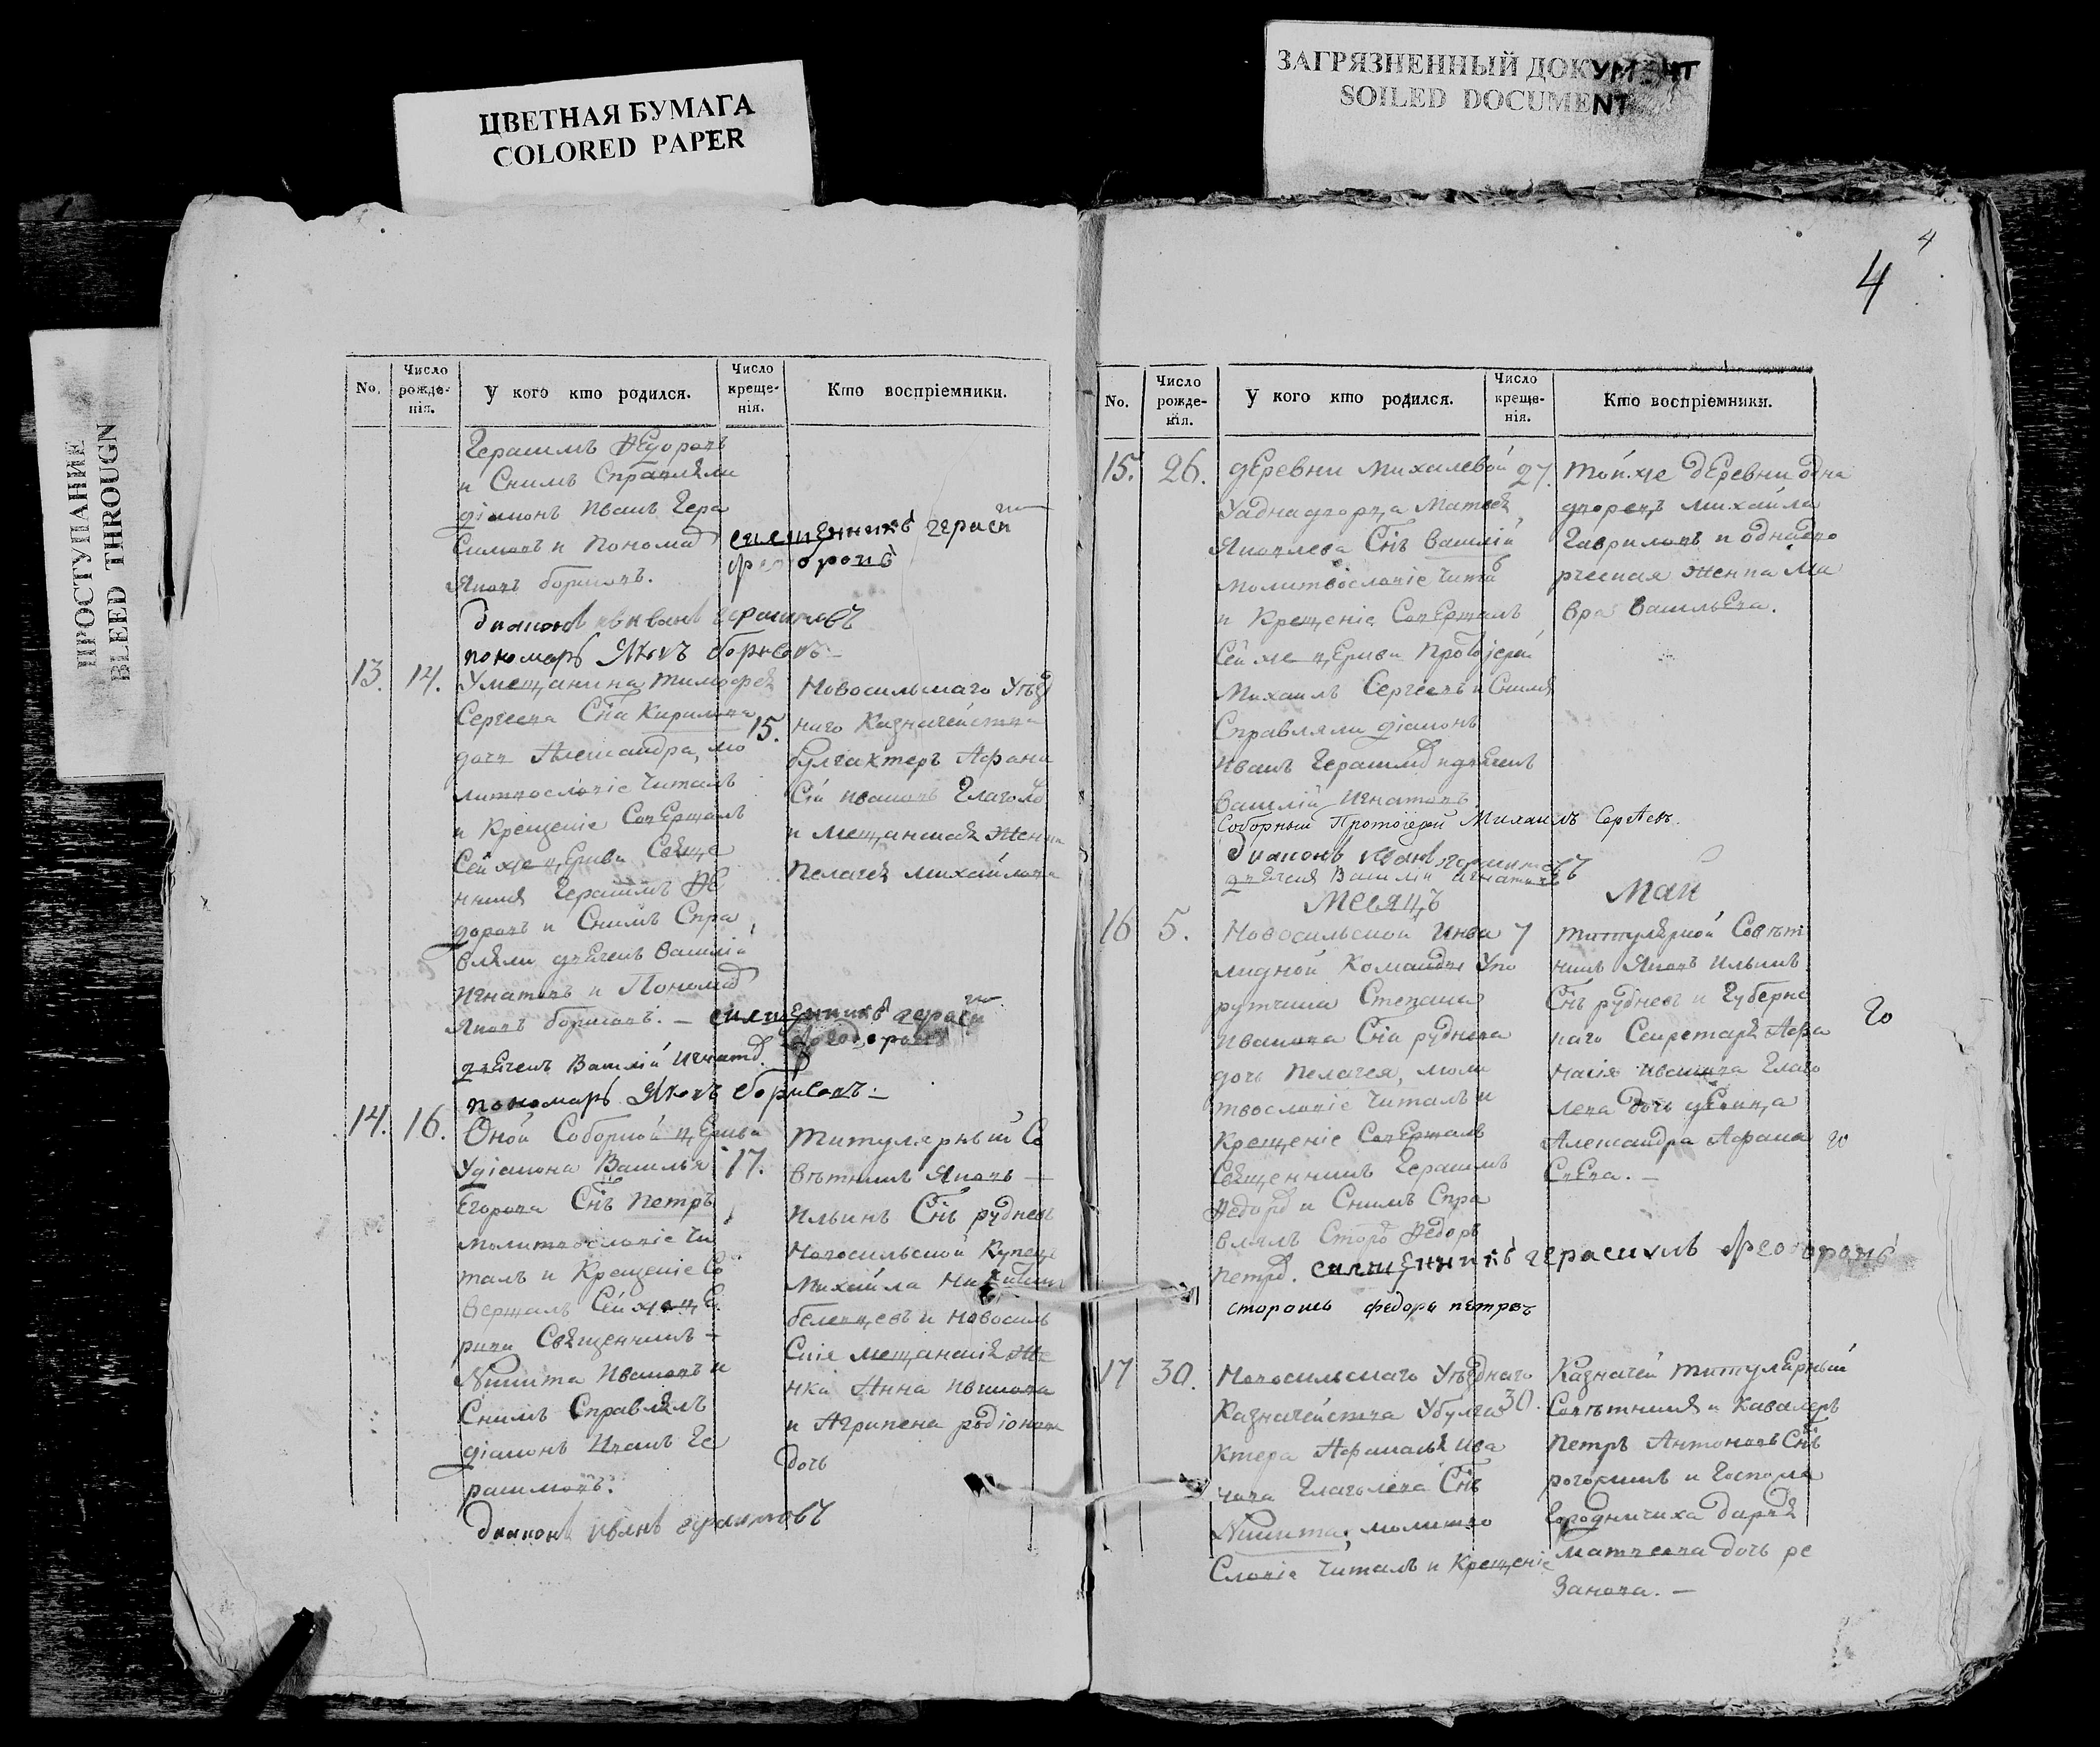 ЦВЕТНАЯ БУМАГА
COLORED PAPER
ЗАГРЯЗНЕННЫЙ ДОКУМЕНТ
SOILED DOCUMENT
ПРОСТУПАНИЕ
BLEED THROUGN
4
4
No.
Число рожденія.
У кого кто родился.
Число крещенія.
Кто воспріемники.
Герасимъ Ѳедоровъ
и Снимъ Справляли
діаконъ Иванъ Гера
симовъ и Понома
Яковъ борисовъ.
священникъ герасим
феодоровъ
диаконъ иванъ герасимовъ
пономарь Яковъ борисовъ
13. 14.
Умещанина Тимофея
Сергеева Сна Кирилова
дочь Александра, мо
литвословіе Читалъ
и Крещеніе Совершалъ
Сей же церкви Свяще
нникъ Герасимъ Ѳе
доровъ и Снимъ Спра
вляли дьячекъ Василій
Игнатовъ и Поном
Яковъ борисовъ.
15.
Новосильскаго Уѣзд
наго Казначейства
булгахтеръ Афана
Сій ивановъ Глаголе
и Мещанская Женка
Пелагея Михайлова
священникъ герасим
феодоровъ
дьячекъ Василій Игнатов.
пономарь Яковъ борисовъ
14. 16.
Оной Соборной церкви
Удіакона Василья
Егорова Снъ Петръ
молитвословіе Чи
талъ и Крещеніе Со
вершалъ Сей же це
ркви Священникъ
Никита Ивановъ и
Снимъ Справлялъ
діаконъ Иванъ Ге
расимовъ.
17.
Титулярный Со
вѣтникъ Яковъ
Ильинъ Снъ рудневъ
Новосильской Купецъ
Михайла
беленцевъ и Новосиль
Скія мещанскія Же
нка Анна Иванова
и Агрипена родіонова
дочь
диаконъ иванъ герасимовъ
No.
Число рожденія.
У кого кто родился.
Число крещенія.
Кто воспріемники.
15. 26.
деревни Михалевой
Уаднадворца Матвея
Яковлева Снъ Василій
молитвословіе Чита
и Крещеніе Совершалъ
Сей же церкви Протоіерей
Михаилъ Сергеевъ и Снимъ
Справляли діаконъ
Иванъ Герасимов и дьячекъ
Василій Игнатовъ
27.
Той же деревни одна
дворецъ Михайла
Гавриловъ и однадво
рческая Женка Ма
вра Васильева.
Соборный Протоіерей Михаилъ Сергѣевъ.
диаконъ иванъ герасимовъ
дьячекъ Василій Игнатовъ
Месяцъ Маи
16 5.
Новосильской Инва
лидной Команды Упо
рутчика Степана
Иванова Сна руднева
дочь Пелагея, моли
твословіе Читалъ и
Крещеніе Совершалъ
Священникъ Герасимъ
Ѳедоров и Снимъ Спра
влялъ Сторо Ѳедоръ
петров.
7
Титулярной Совѣт
никъ Яковъ Ильинъ
Снъ рудневъ и Губернс
каго Секретаря Афа
насія Иванова Глаго
лева дочь девица
Александра Афана
Сьева.
го
го
священникъ герасимъ феодоровъ
сторожъ федоръ петровъ
17 30.
Новосильскаго Уѣзднаго
Казначейства Убулга
ктера Афанасья Ива
нова Глаголева Снъ
Никита, молитво
Словіе Читалъ и Крещеніе
30.
Казначей Титулярный
Совѣтникъ и Кавалеръ
Петръ Антоновъ Снъ
рогожинъ и Госпожа
Городничиха Дарья
Матвеева дочь ре
занова.